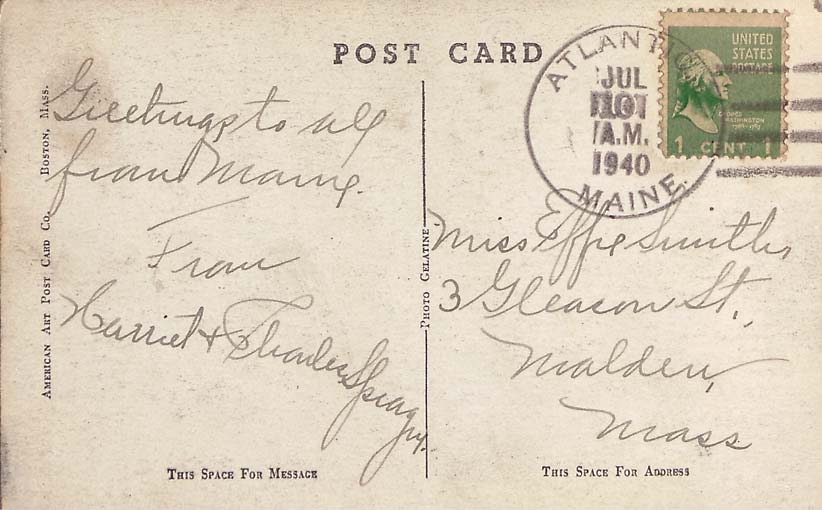 POST CARD
AMERICAN ART POST CARD CO. BOSTON, MASS.
Greetings to all
from Maine.
From
Harriet & Charles
THIS SPACE FOR MESSAGE
PHOTO GELATINE
ATLANTIC
JUL
10
A.M.
1940
MAINE
UNITED
STATES
POSTAGE
GEORGE
WASHINGTON
1789-1797
1 CENT 1
Miss Effie Smith,
3 Gleason St.,
Malden,
Mass
THIS SPACE FOR ADDRESS